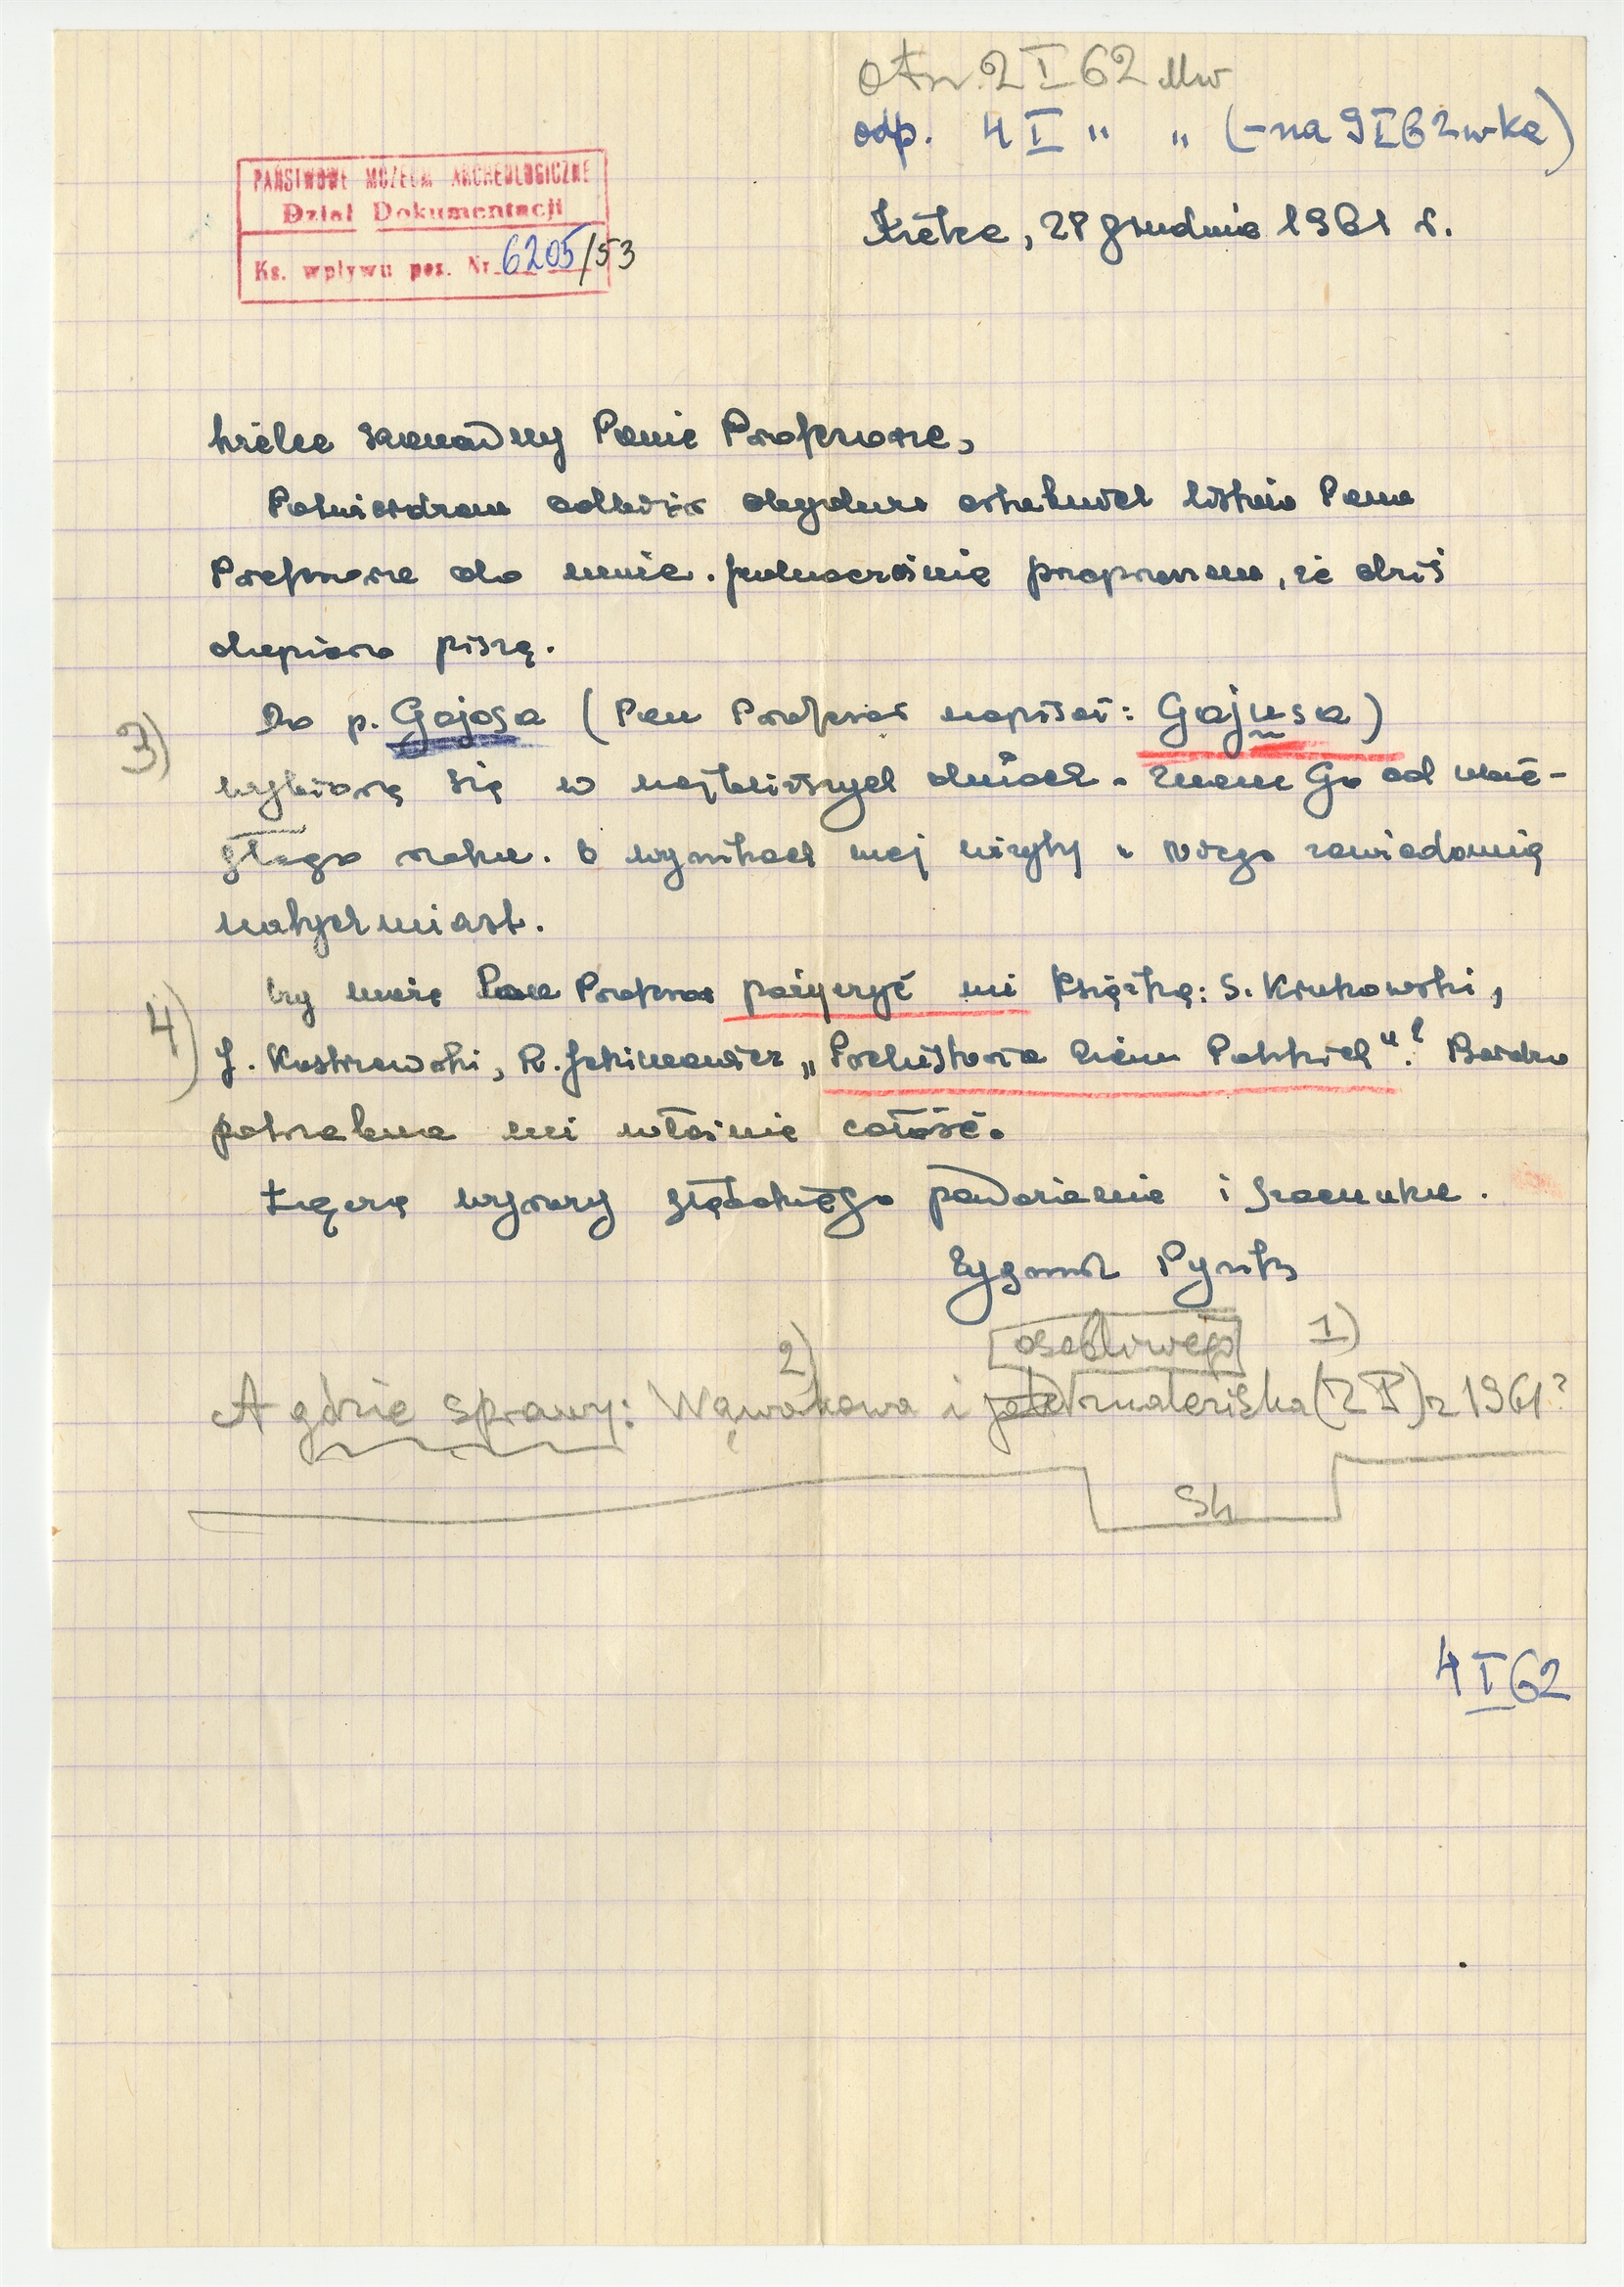 otrz. 2 I 62 Mw
odp. 4 I " " (-na 9 I 62 w-ka)
PAŃSTWOWE MUZEUM ARCHEOLOGICZNE
Dział Dokumentacji
Ks. wpływu poz. Nr 6205/53
Kielce, 28 grudnia 1961 r.
Wielce Szanowny Panie Profesorze,
Potwierdzam odbiór obydwu ostatnich listów Pana
Profesora do mnie. Jednocześnie przepraszam, że dziś
dopiero piszę.
3)
Do p. Gajosa (Pan Profesor napisał: Gajusa)
wybiorę się w najbliższych dniach. Znam Go od ubie-
głego roku. O wynikach mej wizyty u Niego zawiadomię
natychmiast.
4)
Czy może Pan Profesor pożyczyć mi książkę: S. Krukowski,
J. Kostrzewski, R. Jakimowicz „Prehistoria Ziem Polskich"? Bardzo
potrzebna mi właśnie całość.
Łączę wyrazy głębokiego poważania i szacunku.
Zygmunt Pyzik
2) osobliwego 1)
A gdzie sprawy: Wąwolowa i znaleziska (ZP) z 1961?
SK
4 I 62